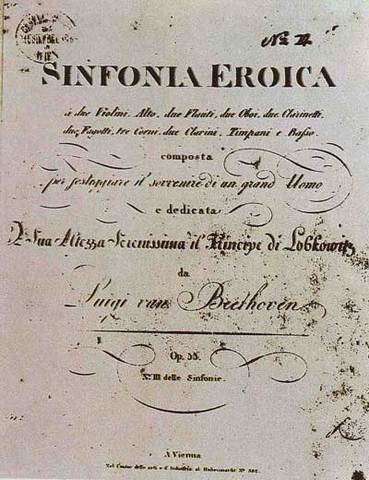 No II
SINFONIA EROICA
à due Violini, Alto, due Flauti, due Oboi, due Clarinetti,
due Fagotti, tre Corni, due Clarini, Timpani e Basso.
composta
per festeggiare il sovvenire di un grand Uomo
e dedicata
A Sua Altezza Serenissima il Principe di Lobkowitz
da
Luigi van Beethoven.
Op. 55.
No III delle Sinfonie.
A Vienna
Nel Contor delle arti e d'Industria al Hohenmarkt No 582.